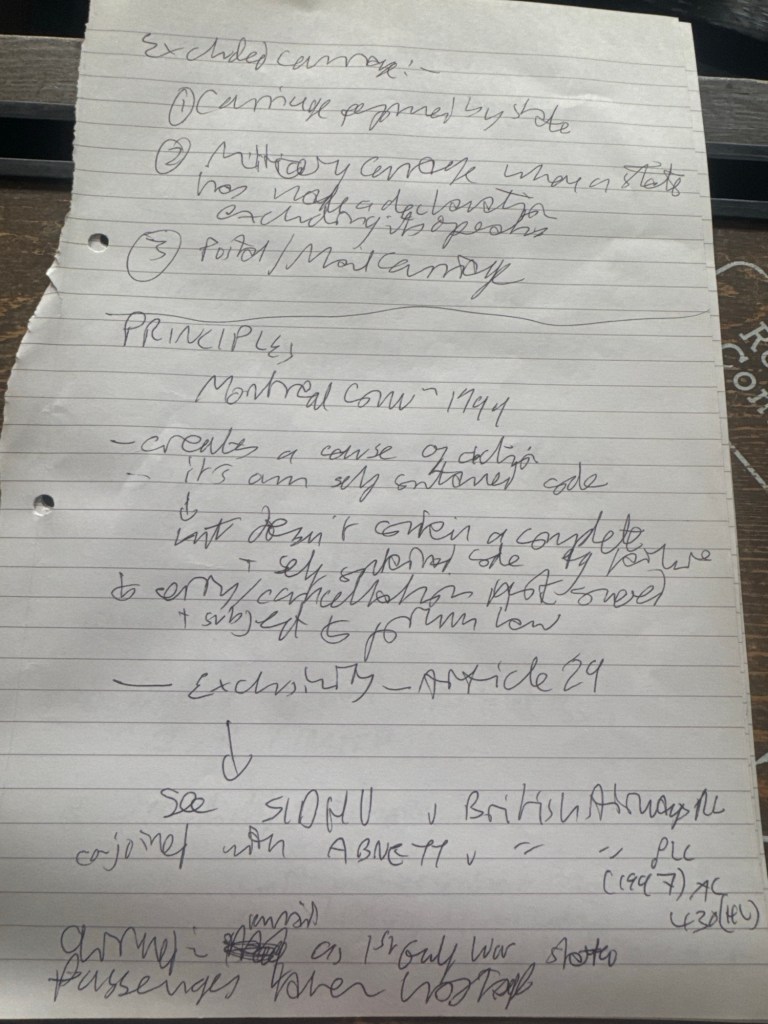 Excluded carriage:-
① Carriage performed by state
② Military carriage where a state
has made a declaration
excluding its operation
③ Postal/Mail carriage
PRINCIPLES
Montreal Conv - 1999
- creates a cause of action
- it's a self contained code
↓
but doesn't contain a complete
+ self contained code eg failure
to carry/cancellation not covered
+ subject to forum law
— Exclusivity - Article 29
↓
See SIDHU v British Airways PLC
cojoined with ABNETT v " " PLC
(1997) AC
430 (HL)
arrived as 1st Gulf War started
passengers taken hostage